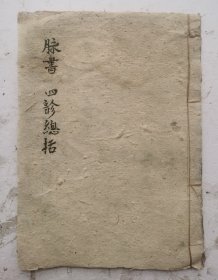 脉書 四診總括